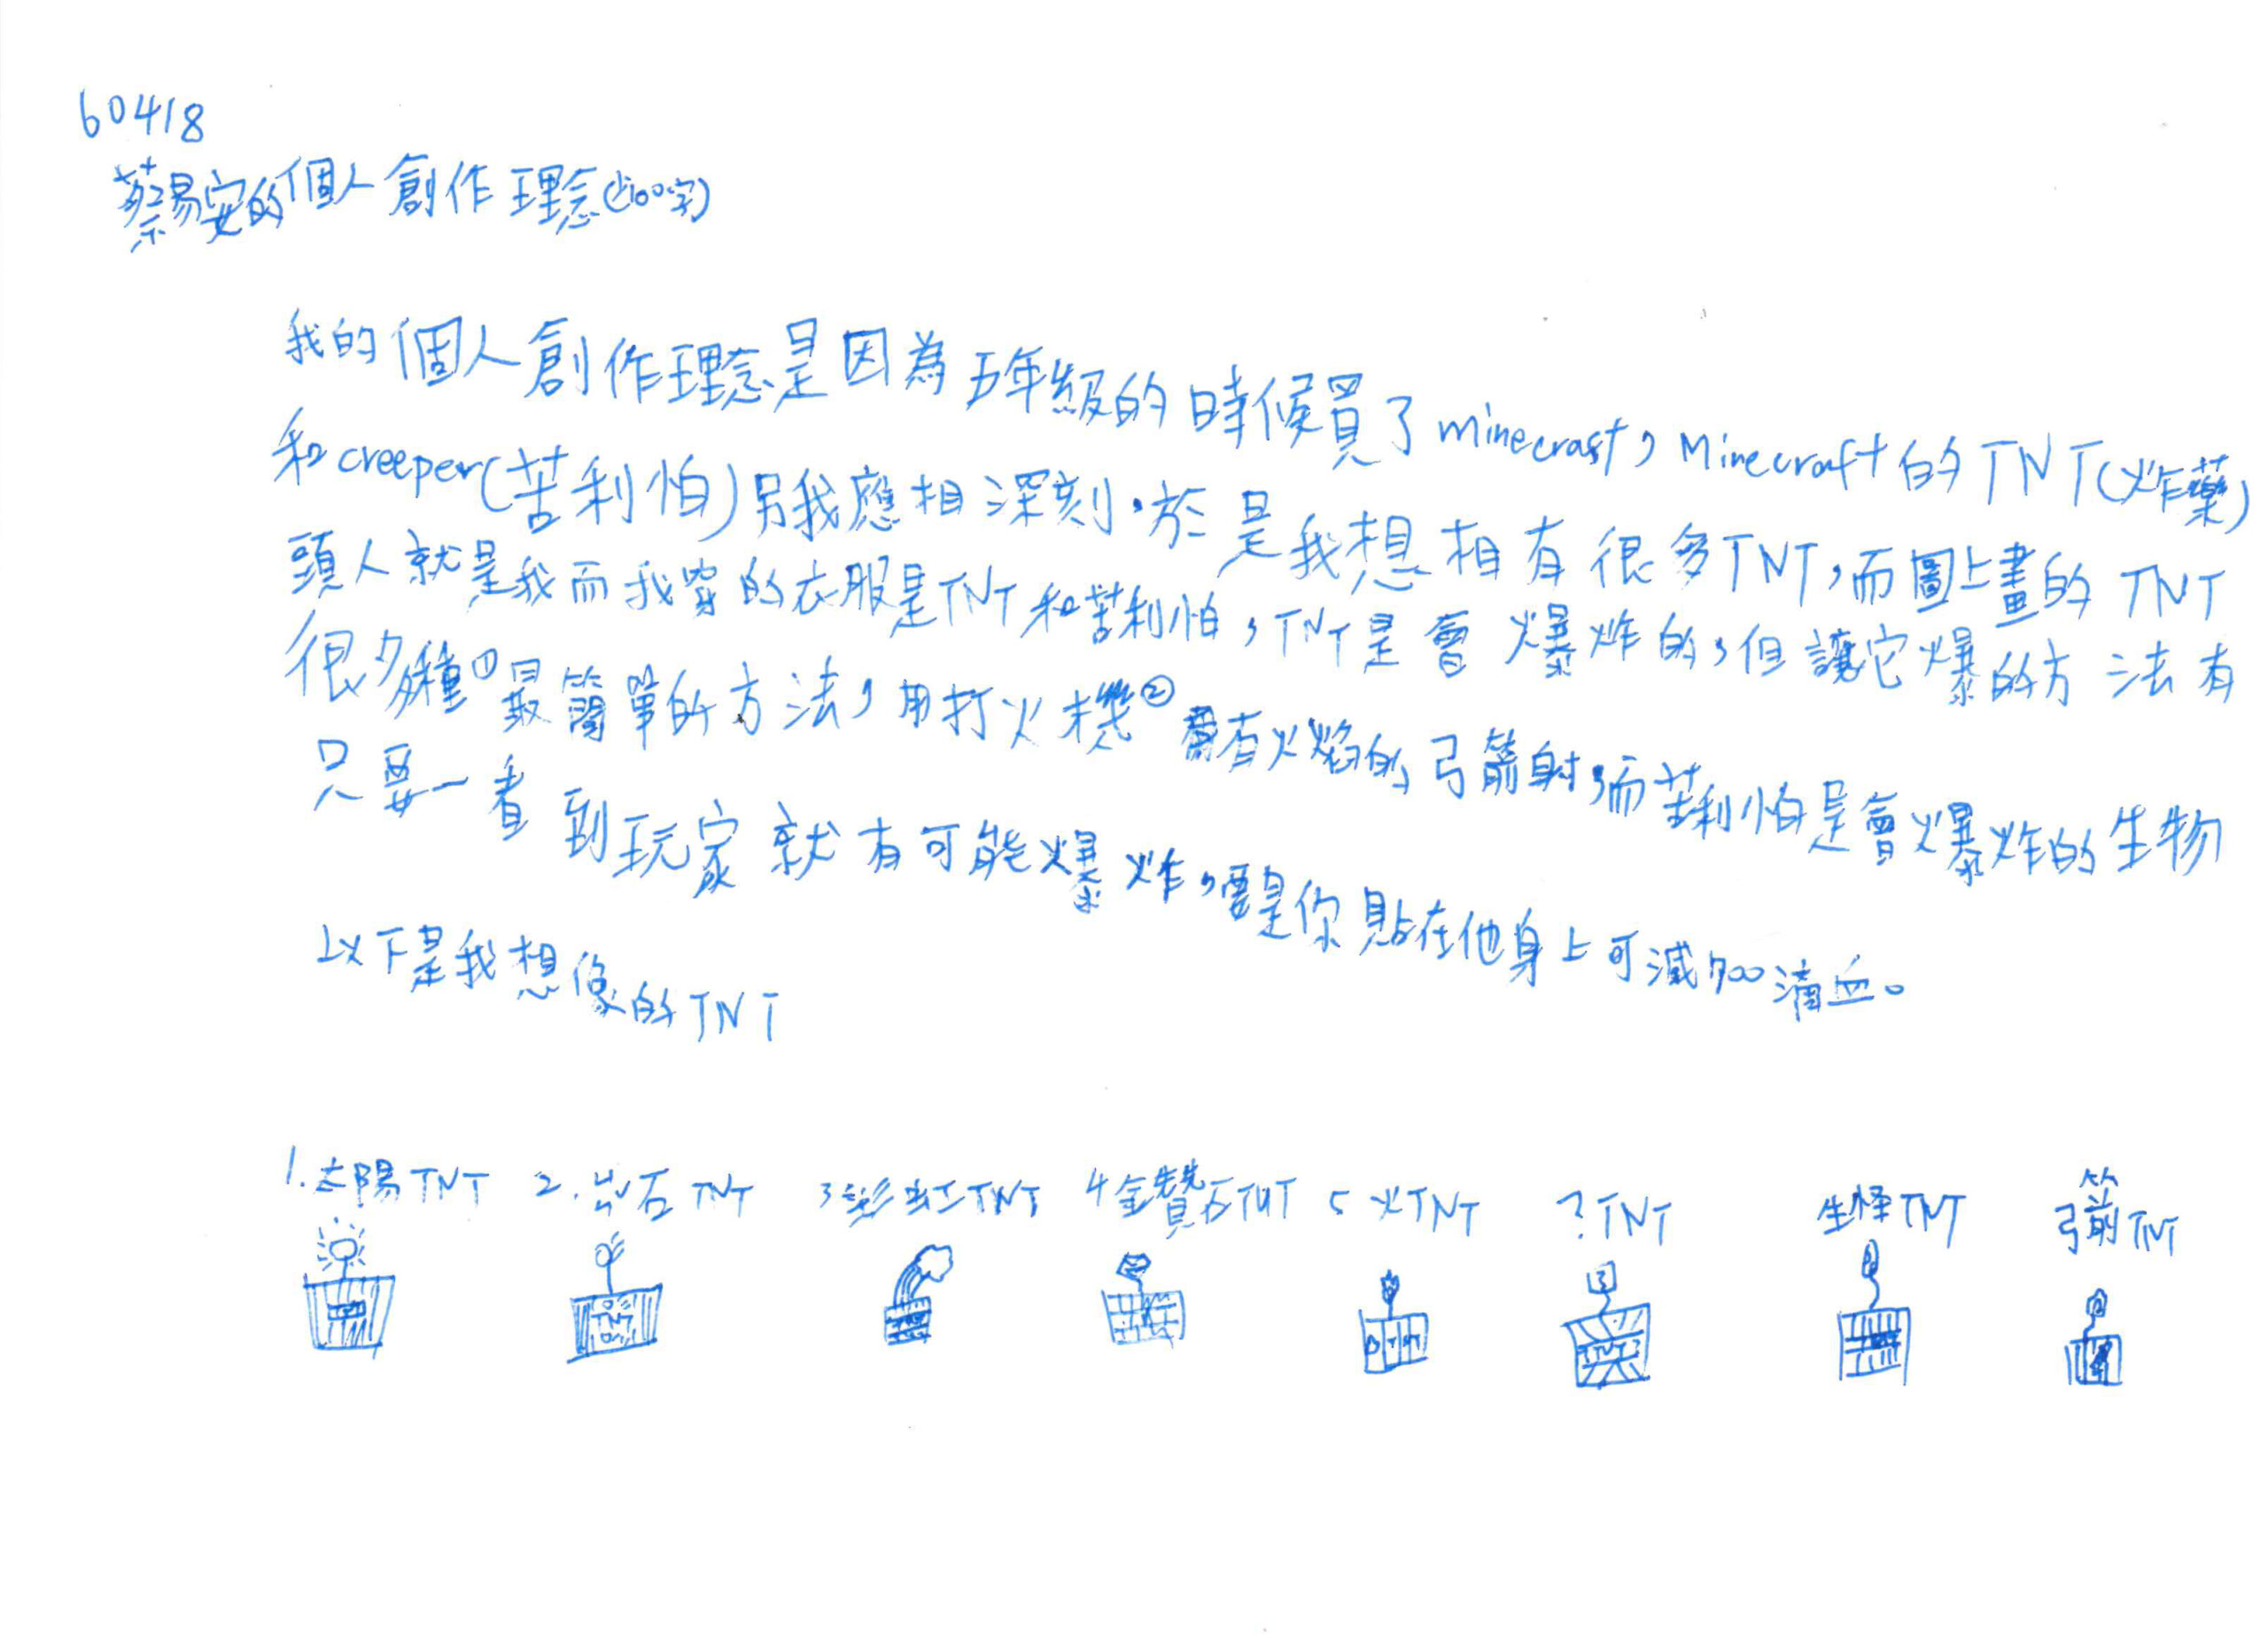 60418
蔡易安的個人創作理念(少100字)
我的個人創作理念是因為五年級的時候買了minecrast，Minecraft的TNT(炸藥)
和creeper(苦利怕)另我應相深刻，於是我想相有很多TNT，而圖上畫的TNT
頭人就是我而我穿的衣服是TNT和苦利怕，TNT是會爆炸的，但讓它爆的方法有
很多種①最簡單的方法，用打火機②有火焰的弓箭射，而苦利怕是會爆炸的生物
只要一看到玩家就有可能爆炸，要是你貼在他身上可減700滴血。
以下是我想像的TNT
1.太陽TNT 2.岩石TNT 3彩虹TNT 4金鑽石TNT 5火TNT ?TNT 生怪TNT 弓箭TNT